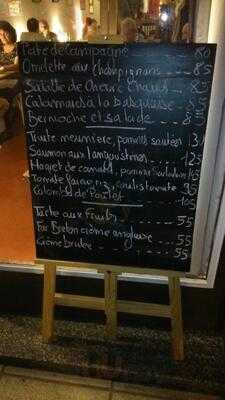 Paté de campagne 80
Omelette aux champignons --- 85
Salade de chèvre chaud --- 85
Calamars à la basquaise --- 85
Brioche et salade ---
Truite meunière, pommes sautées 130
Saumon aux langoustines --- 125
Magret de canard, pommes Sarladaises 165
Tomate farcie riz, coulis tomate 95
Colombo de Poulet --- 105
Tarte aux Fruits --- 55
Far Breton crème anglaise --- 55
Crème brulée --- 55